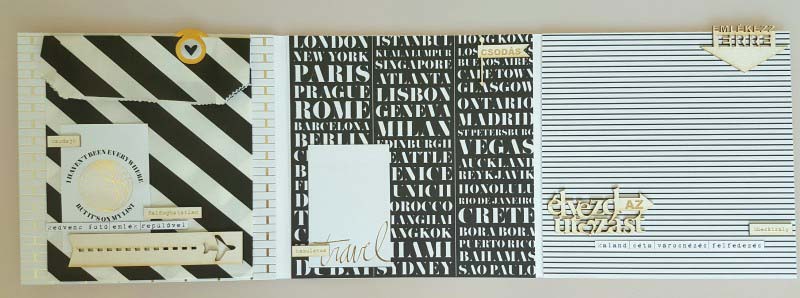 csodajó
I HAVEN'T BEEN EVERYWHERE
BUT IT'S ON MY LIST
Felfoghatatlan
kedvenc fotó emlék repülővel
LONDON
NEW YORK
PARIS
PRAGUE
ROME
BARCELONA
BERLIN
DUBAI
ISTANBUL
KUALA LUMPUR
SINGAPORE
ATLANTA
LISBON
GENEVA
MILAN
EDINBURGH
SEATTLE
VENICE
MUNICH
MOROCCO
SHANGHAI
BANGKOK
MIAMI
SYDNEY
HONG KONG
CSODÁS
BUENOS AIRES
CAPE TOWN
GLASGOW
ONTARIO
MADRID
ST PETERSBURG
VEGAS
AUCKLAND
REYKJAVIK
HONOLULU
RIO DE JANEIRO
CRETE
BORA BORA
PUERTO RICO
BAHAMAS
SAO PAULO
travel
EMLÉKEZZ
ERRE
élvezd AZ
utazást
kaland séta városnézés felfedezés